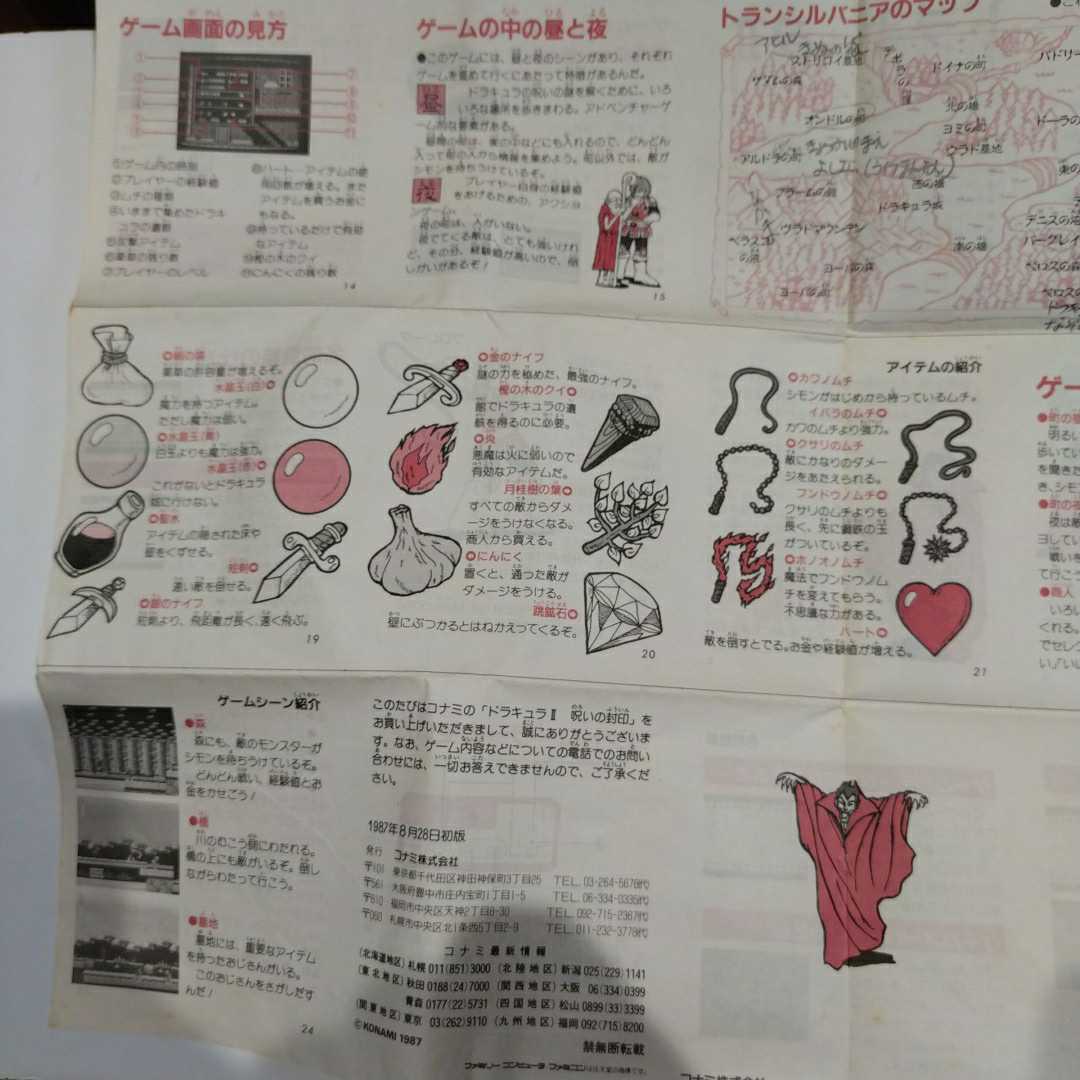 ゲーム画面の見方
①ゲーム内の時刻
②プレイヤーの経験値
③ムチの種類
④いままで集めたドラキ
ュラの遺骸
⑤攻撃アイテム
⑥薬草の残り数
⑦プレイヤーのレベル
⑧ハート…アイテムの使
用回数が増える。また
アイテムを買うお金に
もなる。
⑨持っているだけで有効
なアイテム
⑩樫の木のクイ
⑪にんにくの残り数
14
ゲームの中の昼と夜
●このゲームには、昼と夜のシーンがあり、それぞれ
ゲームを進めて行くにあたって特徴があるんだ。
昼
ドラキュラの呪いの謎を解くために、いろ
いろな場所を歩きまわる。アドベンチャーゲ
ーム的な要素がある。
昼間の街は、家の中などにも入れるので、どんどん
入って街の人から情報を集めよう。街以外では、敵が
シモンを待ちうけているぞ。
夜
プレイヤー自身の経験値
をあげるための、アクショ
ンゲーム。
夜の街は、人がいない。
夜でてくる敵は、とても強いけれ
ど、その分、経験値が高いので、倒
しがいがあるぞ！
15
トランシルバニアのマップ
ストリゴイ墓地
ドイナの町
オンドルの町
北の橋
ヨミの町
ウラド墓地
アルドラの町
西の橋
アラームの町
ドラキュラ城
ヴラドマウンテン
ベラスコ
の沼
東の橋
ヨーバの森
ヨーバの町
デニスの沼
ベロスの森
●袋の袋
薬草の許容量が増えるぞ。
水晶玉(白)●
魔力を持つアイテム。
ただし魔力は弱い。
●水晶玉(青)
白玉よりも魔力は強力。
水晶玉(赤)●
これがないとドラキュラ
城に行けない。
●聖水
アイテムの隠された床や
壁をくずせる。
短剣●
遠い敵を倒せる。
●銀のナイフ
短剣より、飛距離が長く、遠く飛ぶ。
19
●金のナイフ
謎の力を極めた、最強のナイフ。
樫の木のクイ●
館でドラキュラの遺
骸を得るのに必要。
●炎
悪魔は火に弱いので
有効なアイテムだ。
月桂樹の葉●
すべての敵からダメ
ージをうけなくなる。
商人から買える。
●にんにく
置くと、通った敵が
ダメージをうける。
跳鉱石●
壁にぶつかるとはねかえってくるぞ。
20
アイテムの紹介
●カワノムチ
シモンがはじめから持っているムチ。
イバラのムチ●
カワのムチより強力。
●クサリのムチ
敵にかなりのダメー
ジをあたえられる。
フンドウノムチ●
クサリのムチよりも
長く、先に鋼鉄の玉
がついているぞ。
●ホノオノムチ
魔法でフンドウノム
チを変えてもらう。
不思議な力がある。
ハート●
敵を倒すとでる。お金や経験値が増える。
21
ゲームシーン紹介
●森
森にも、敵のモンスターが
シモンを待ちうけているぞ。
どんどん戦い、経験値とお
金をかせごう！
●橋
川のむこう側にわたれる。
橋の上にも敵がいるぞ。倒し
ながらわたって行こう。
●墓地
墓地には、重要なアイテム
を持ったおじさんがいる。
このおじさんをさがしだす
んだ！
24
このたびはコナミの「ドラキュラⅡ 呪いの封印」を
お買い上げいただきまして、誠にありがとうございま
す。なお、ゲーム内容などについての電話でのお問い
合わせには、一切お答えできませんので、ご了承くだ
さい。
1987年8月28日初版
発行 コナミ株式会社
〒101 東京都千代田区神田神保町3丁目25 TEL.03-264-5678代
〒561 大阪府豊中市庄内宝町1丁目1-5 TEL.06-334-0335代
〒810 福岡市中央区天神2丁目8-30 TEL.092-715-2367代
〒060 札幌市中央区北1条西5丁目2-9 TEL.011-232-3778代
コナミ最新情報
(北海道地区)札幌 011(851)3000 (北陸地区)新潟 025(229)1141
(東北地区)秋田 0188(24)7000 (関西地区)大阪 06(334)0399
青森 0177(22)5731 (四国地区)松山 0899(33)3399
(関東地区)東京 03(262)9110 (九州地区)福岡 092(715)8200
©KONAMI 1987
禁無断転載
ファミリーコンピュータ ファミコンは任天堂の商標です。
コナミ株式会社